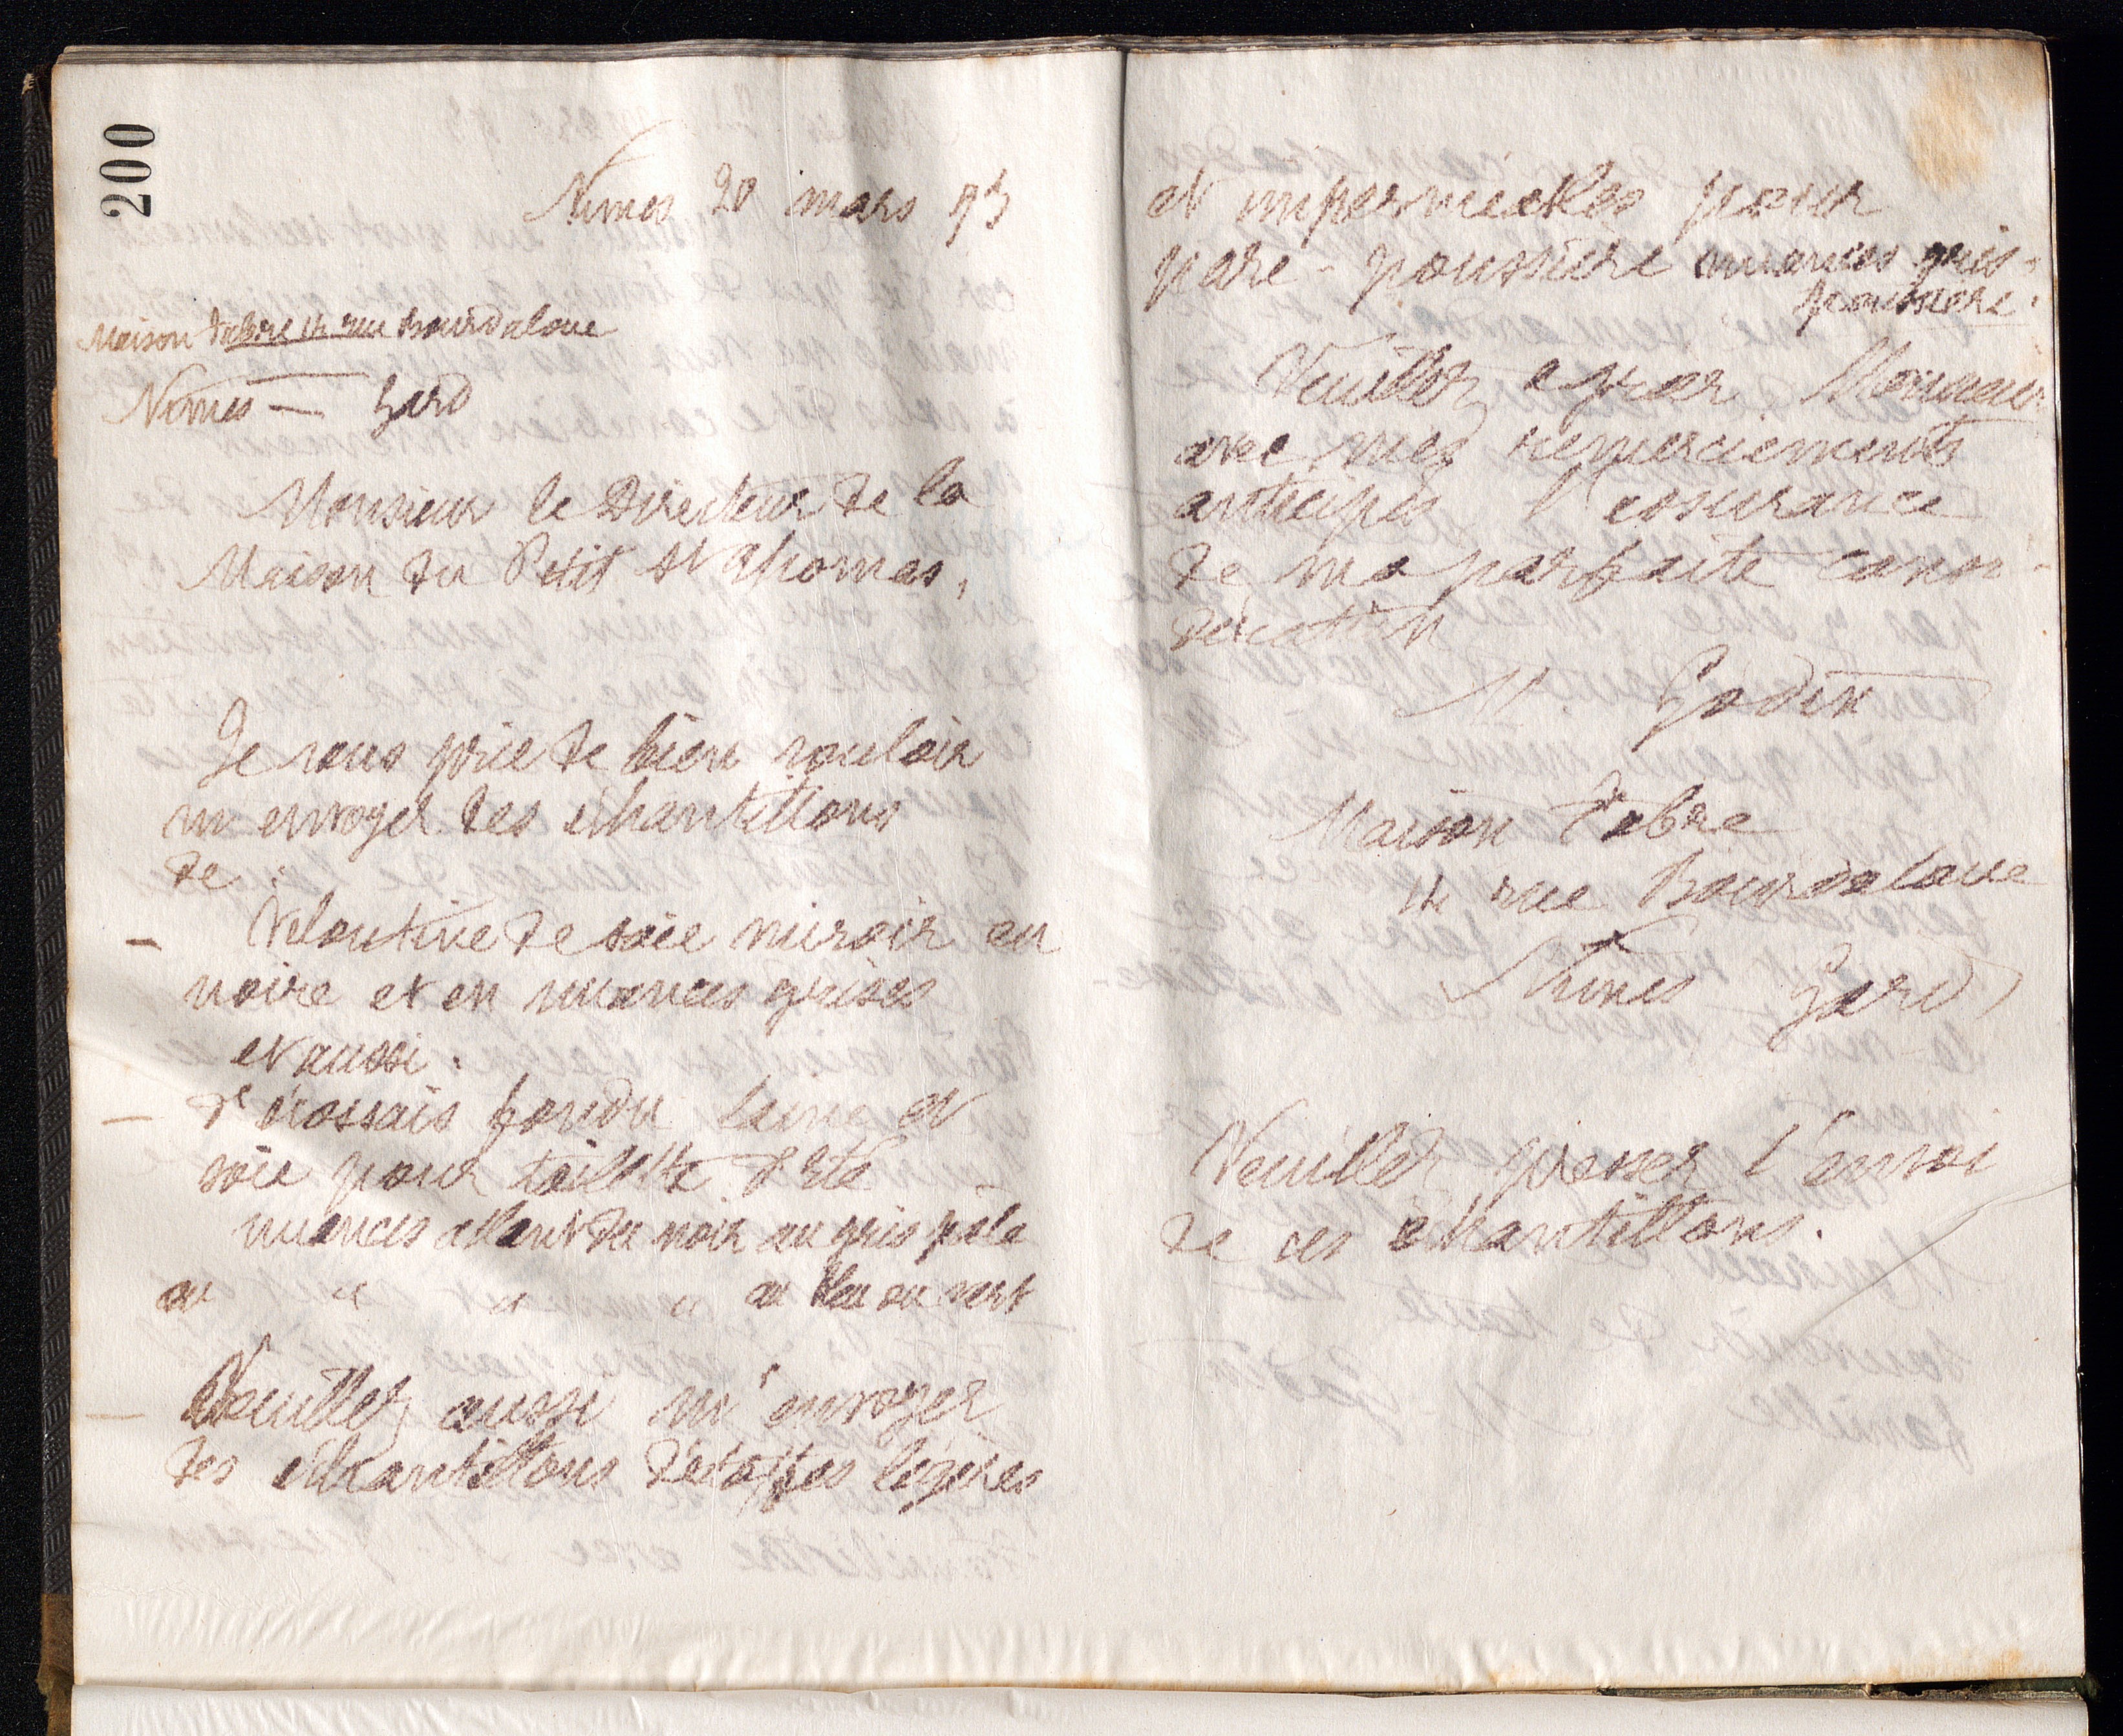 200
Nimes 20 mars 93
Maison Fabre 14 rue Bourdaloue
Nimes — Gard
Monsieur le Directeur de la
Maison du Petit St Thomas,
Je vous prie de bien vouloir
m'envoyer des échantillons
de :
— Veloutine de soie miroir en
noire et en nuances grises
et aussi :
— d'écossais fondu laine et
soie pour toilette d'été
nuances allant du noir au gris pâle
ou " " " au bleu ou vert
— Veuillez aussi m'envoyer
des échantillons d'étoffes légères
et imperméables pour
pare-poussière nuances gris-
poussière.
Veuillez agréer Monsieur
avec mes remerciements
anticipés l'assurance
de ma parfaite consi-
dération
M Godin
Maison Fabre
14 rue Bourdaloue
Nimes Gard
Veuillez presser l'envoi
de ces échantillons.